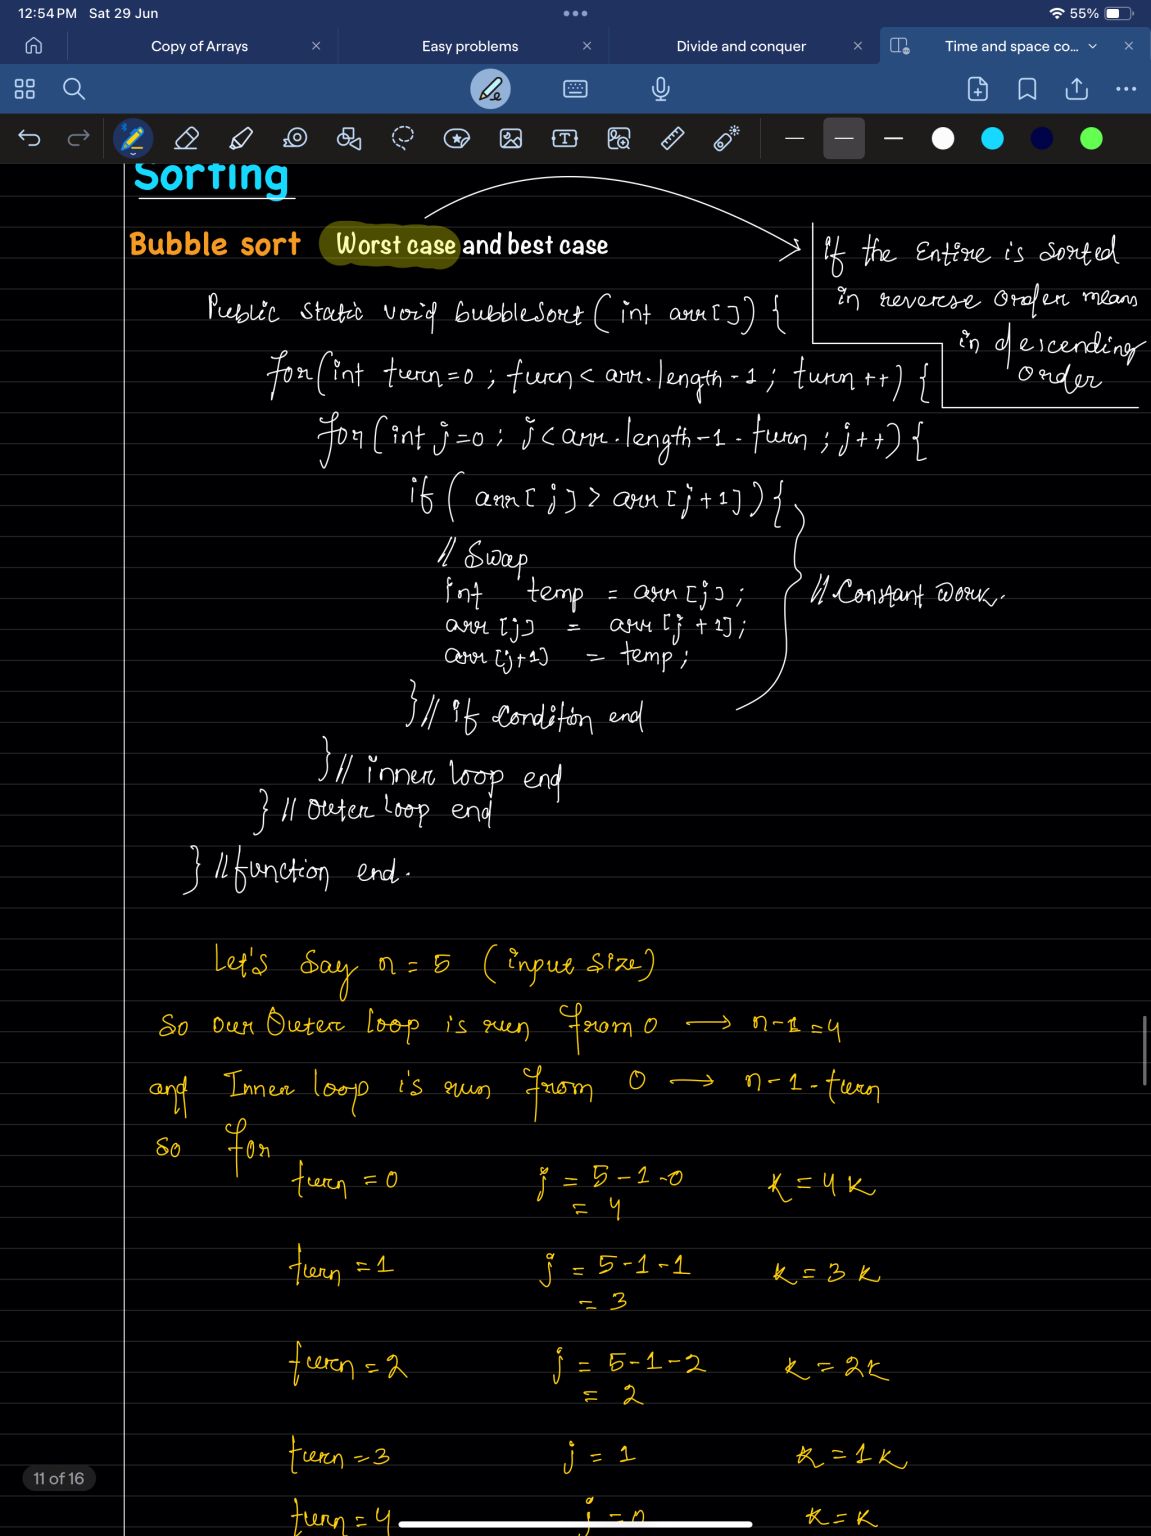 12:54 PM Sat 29 Jun
55%
Copy of Arrays
Easy problems
Divide and conquer
Time and space co...
Sorting
Bubble sort Worst case and best case
If the Entire is sorted
in reverse order means
in descending
order
Public static void bubbleSort ( int arr[]) {
for(int turn=0 ; turn < arr.length-1 ; turn ++) {
for(int j=0 ; j<arr.length-1-turn ; j++) {
if ( arr[j] > arr[j+1]) {
// Swap
int temp = arr[j];
arr[j] = arr[j+1];
arr[j+1] = temp;
// Constant work.
} // if condition end
} // inner loop end
} // Outer loop end
} // function end.
Let's Say n = 5 (input size)
So our Outer loop is run from 0 → n-1 = 4
and Inner loop is run from 0 → n-1-turn
so for
turn = 0 j = 5-1-0 K = 4K
= 4
turn = 1 j = 5-1-1 K = 3K
= 3
turn = 2 j = 5-1-2 K = 2K
= 2
turn = 3 j = 1 K = 1K
turn = 4 j = 0 K = K
11 of 16